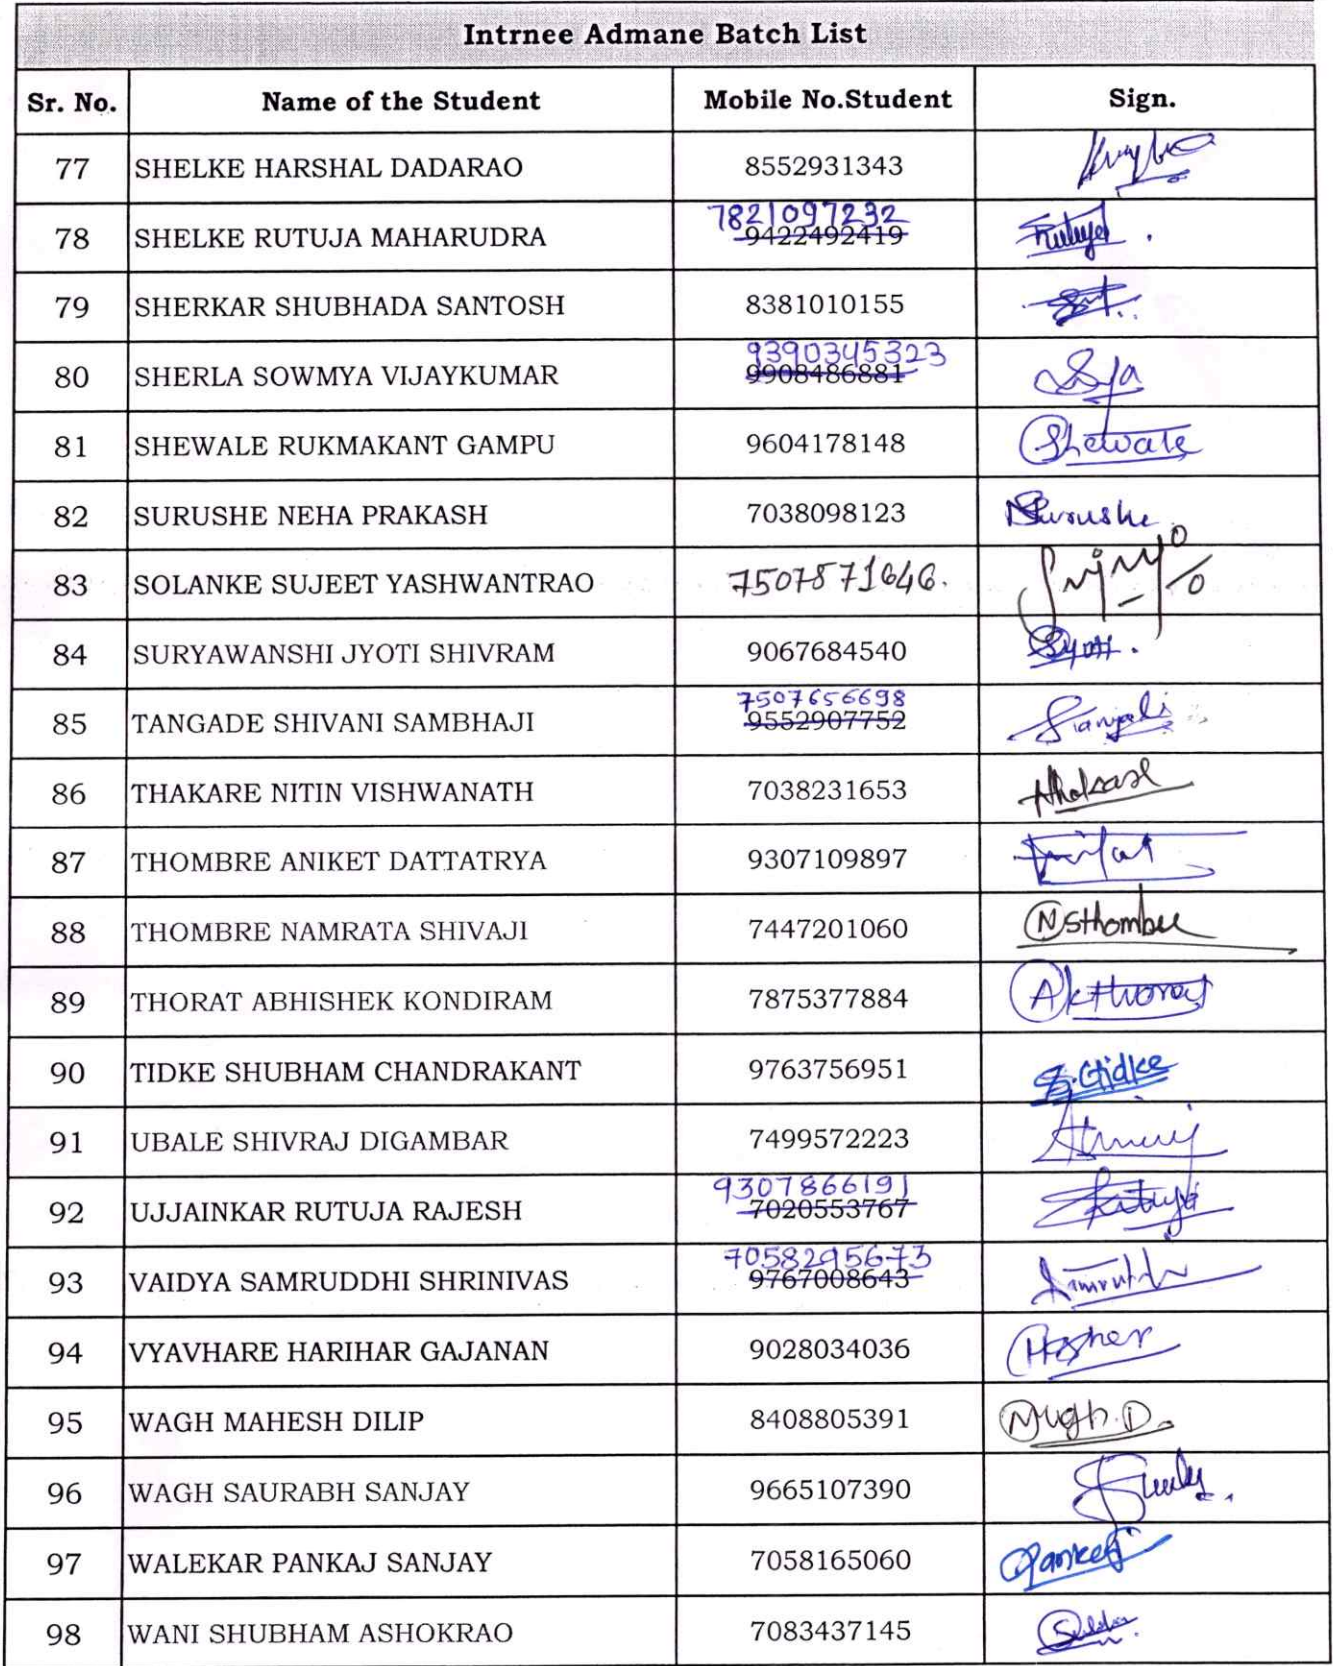 Intrnee Admane Batch List
Sr. No. Name of the Student Mobile No.Student Sign.
77 SHELKE HARSHAL DADARAO 8552931343
7821097232
78 SHELKE RUTUJA MAHARUDRA 9422492419 Rutuja
79 SHERKAR SHUBHADA SANTOSH 8381010155
9390345323
80 SHERLA SOWMYA VIJAYKUMAR 9908486881
81 SHEWALE RUKMAKANT GAMPU 9604178148 Shewale
82 SURUSHE NEHA PRAKASH 7038098123 NSurushe
83 SOLANKE SUJEET YASHWANTRAO 7507871646.
84 SURYAWANSHI JYOTI SHIVRAM 9067684540
7507656698
85 TANGADE SHIVANI SAMBHAJI 9552907752
86 THAKARE NITIN VISHWANATH 7038231653 Thakare
87 THOMBRE ANIKET DATTATRYA 9307109897
88 THOMBRE NAMRATA SHIVAJI 7447201060 NSThombre
89 THORAT ABHISHEK KONDIRAM 7875377884 AKThorat
90 TIDKE SHUBHAM CHANDRAKANT 9763756951 S.Ctidke
91 UBALE SHIVRAJ DIGAMBAR 7499572223
9307866191
92 UJJAINKAR RUTUJA RAJESH 7020553767 Rutuja
7058295673
93 VAIDYA SAMRUDDHI SHRINIVAS 9767008643
94 VYAVHARE HARIHAR GAJANAN 9028034036
95 WAGH MAHESH DILIP 8408805391
96 WAGH SAURABH SANJAY 9665107390
97 WALEKAR PANKAJ SANJAY 7058165060 Pankaj
98 WANI SHUBHAM ASHOKRAO 7083437145